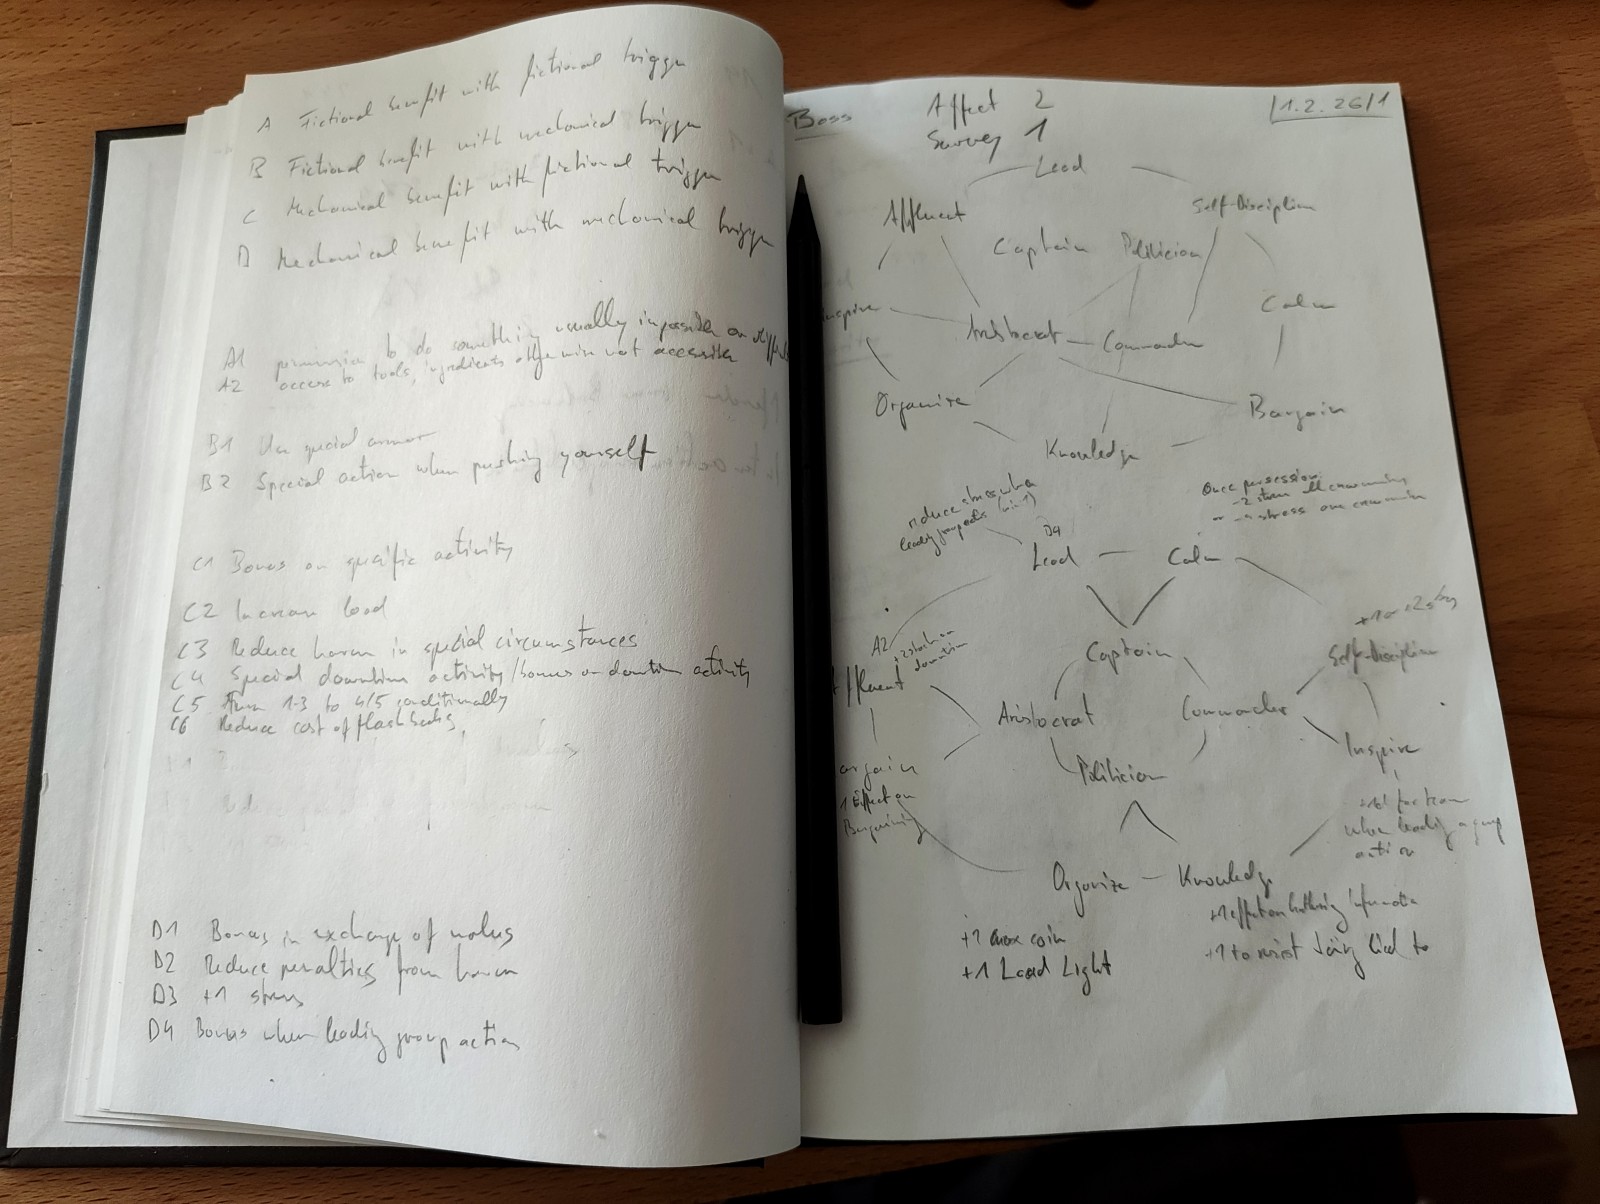 A Fictional benefit with fictional trigger
B Fictional benefit with mechanical trigger
C Mechanical benefit with fictional trigger
D Mechanical benefit with mechanical trigger
A1 permission to do something usually impossible or
A2 access to tools, ingredients otherwise not accessible
B1 Use special armor
B2 Special action when pushing yourself
C1 Bonus on specific activity
C2 Increase load
C3 Reduce harm in special circumstances
C4 Special downtime activity/bonus on downtime activity
C5 Turn 1-3 to 4/5 conditionally
C6 Reduce cost of flashbacks
D1 Bonus in exchange of
D2 Reduce penalties from harm
D3 +1 stress
D4 Bonus when leading group action
Boss
Affect 2
Survey 1
11.2.26/1
Lead
Affluent
Self-Discipline
Captain
Politician
Inspire
Aristocrat
Commander
Calm
Organize
Bargain
Knowledge
reduce stress when
leading group actions (min 1)
Once per session
-2 stress all
or stress one
D4
Lead
Calm
+1 or +2
A2
downtime
Captain
Self-Discipline
Affluent
Aristocrat
Commander
Inspire
argain
Politician
Effect on
Bargaining
+1d for team
when leading a group
action
Organize
Knowledge
+1 max coin
+1 Load Light
+1 effect on gathering information
+1 to resist being lied to